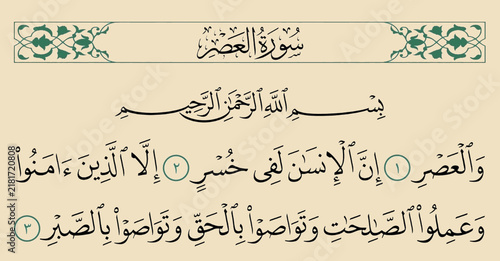 سُورَةُ ٱلْعَصْرِ
بِسْمِ ٱللَّهِ ٱلرَّحْمَٰنِ ٱلرَّحِيمِ
وَٱلْعَصْرِ ١ إِنَّ ٱلْإِنسَٰنَ لَفِى خُسْرٍ ٢ إِلَّا ٱلَّذِينَ ءَامَنُوا۟
وَعَمِلُوا۟ ٱلصَّٰلِحَٰتِ وَتَوَاصَوْا۟ بِٱلْحَقِّ وَتَوَاصَوْا۟ بِٱلصَّبْرِ ٣
Adobe Stock | #2181720808